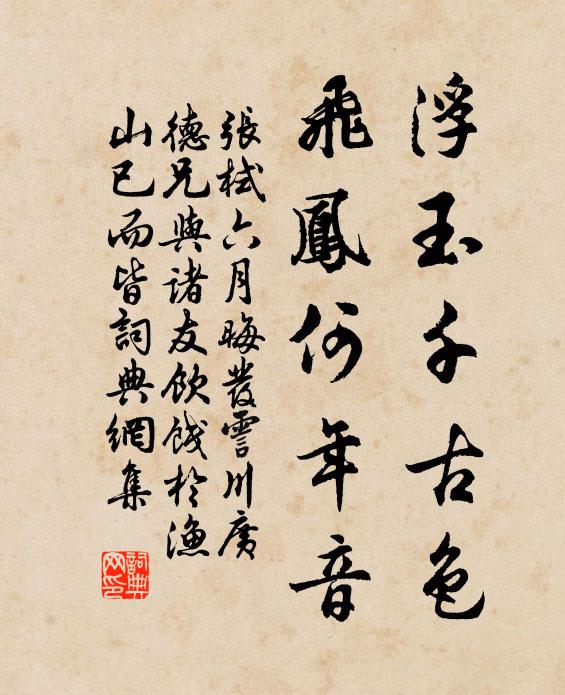 浮玉千古色
飛鳳何年音
張栻六月晦發霅川廣
德兄與諸友飲餞於漁
山已而皆詞典網集
詞典網印